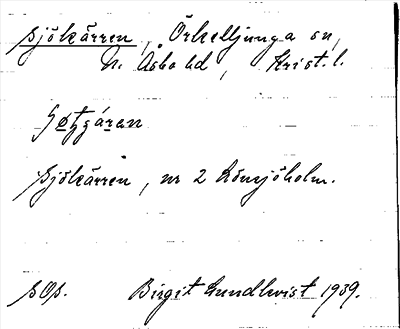 Sjökärren, Örkelljunga sn,
N. Åsbo hd, Krist. l.
Sjökärren, nr 2 Lönsjöholm.
SOS. Birgit Lundkvist 1939.